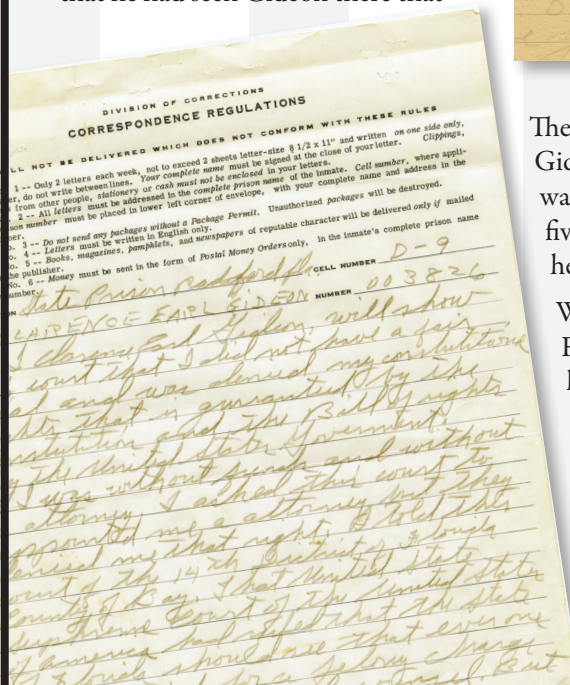 that he had seen Gideon there that
The
Gid
wa
fiv
he
W
DIVISION OF CORRECTIONS
CORRESPONDENCE REGULATIONS
LL NOT BE DELIVERED WHICH DOES NOT CONFORM WITH THESE RULES
1 -- Only 2 letters each week, not to exceed 2 sheets letter-size 8 1/2 x 11" and written on one side only,
er, do not write between lines. Your complete name must be signed at the close of your letter. Clippings,
from other people, stationery or cash must not be enclosed in your letters.
2 -- All letters must be addressed in the complete prison name of the inmate. Cell number, where appli-
son number must be placed in lower left corner of envelope, with your complete name and address in the
ner.
o. 3 -- Do not send any packages without a Package Permit. Unauthorized packages will be destroyed.
o. 4 -- Letters must be written in English only.
o. 5 -- Books, magazines, pamphlets, and newspapers of reputable character will be delivered only if mailed
he publisher.
No. 6 -- Money must be sent in the form of Postal Money Orders only, in the inmate's complete prison name
umber.
CELL NUMBER D-9
ON State Prison
LARENCE EARL GIDEON NUMBER 003826
I Clarence Earl Gideon, will show
court that I did not have a fair
al and was denied my constitutiona
hts that is guaranteed by the
nstitution and the Bill of rights
y the United State Government.
I was without funds and without
attorney. I asked this court to
appointed me a attorney but they
denied me that right. I told this
court of the 14th District of Florida
County of Bay. That United State
Supreme Court of the United State
of america had that the State
of Florida should see that everyone
for a felony charge
counsel. But